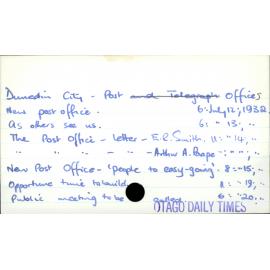 Dunedin City - Post and Telegraph Offices
New post office. 6: July 12; 1932
As others see us. 6: " 13; "
The Post Office - letter - E.R. Smith. 11: " 14; "
" " " - " - Arthur A. Pope " : " " ; "
New Post Office - 'people to easy-going'. 8: - 15; "
Opportune time to build 11: - 19; "
Public meeting to be called 6: " 20; "
OTAGO DAILY TIMES